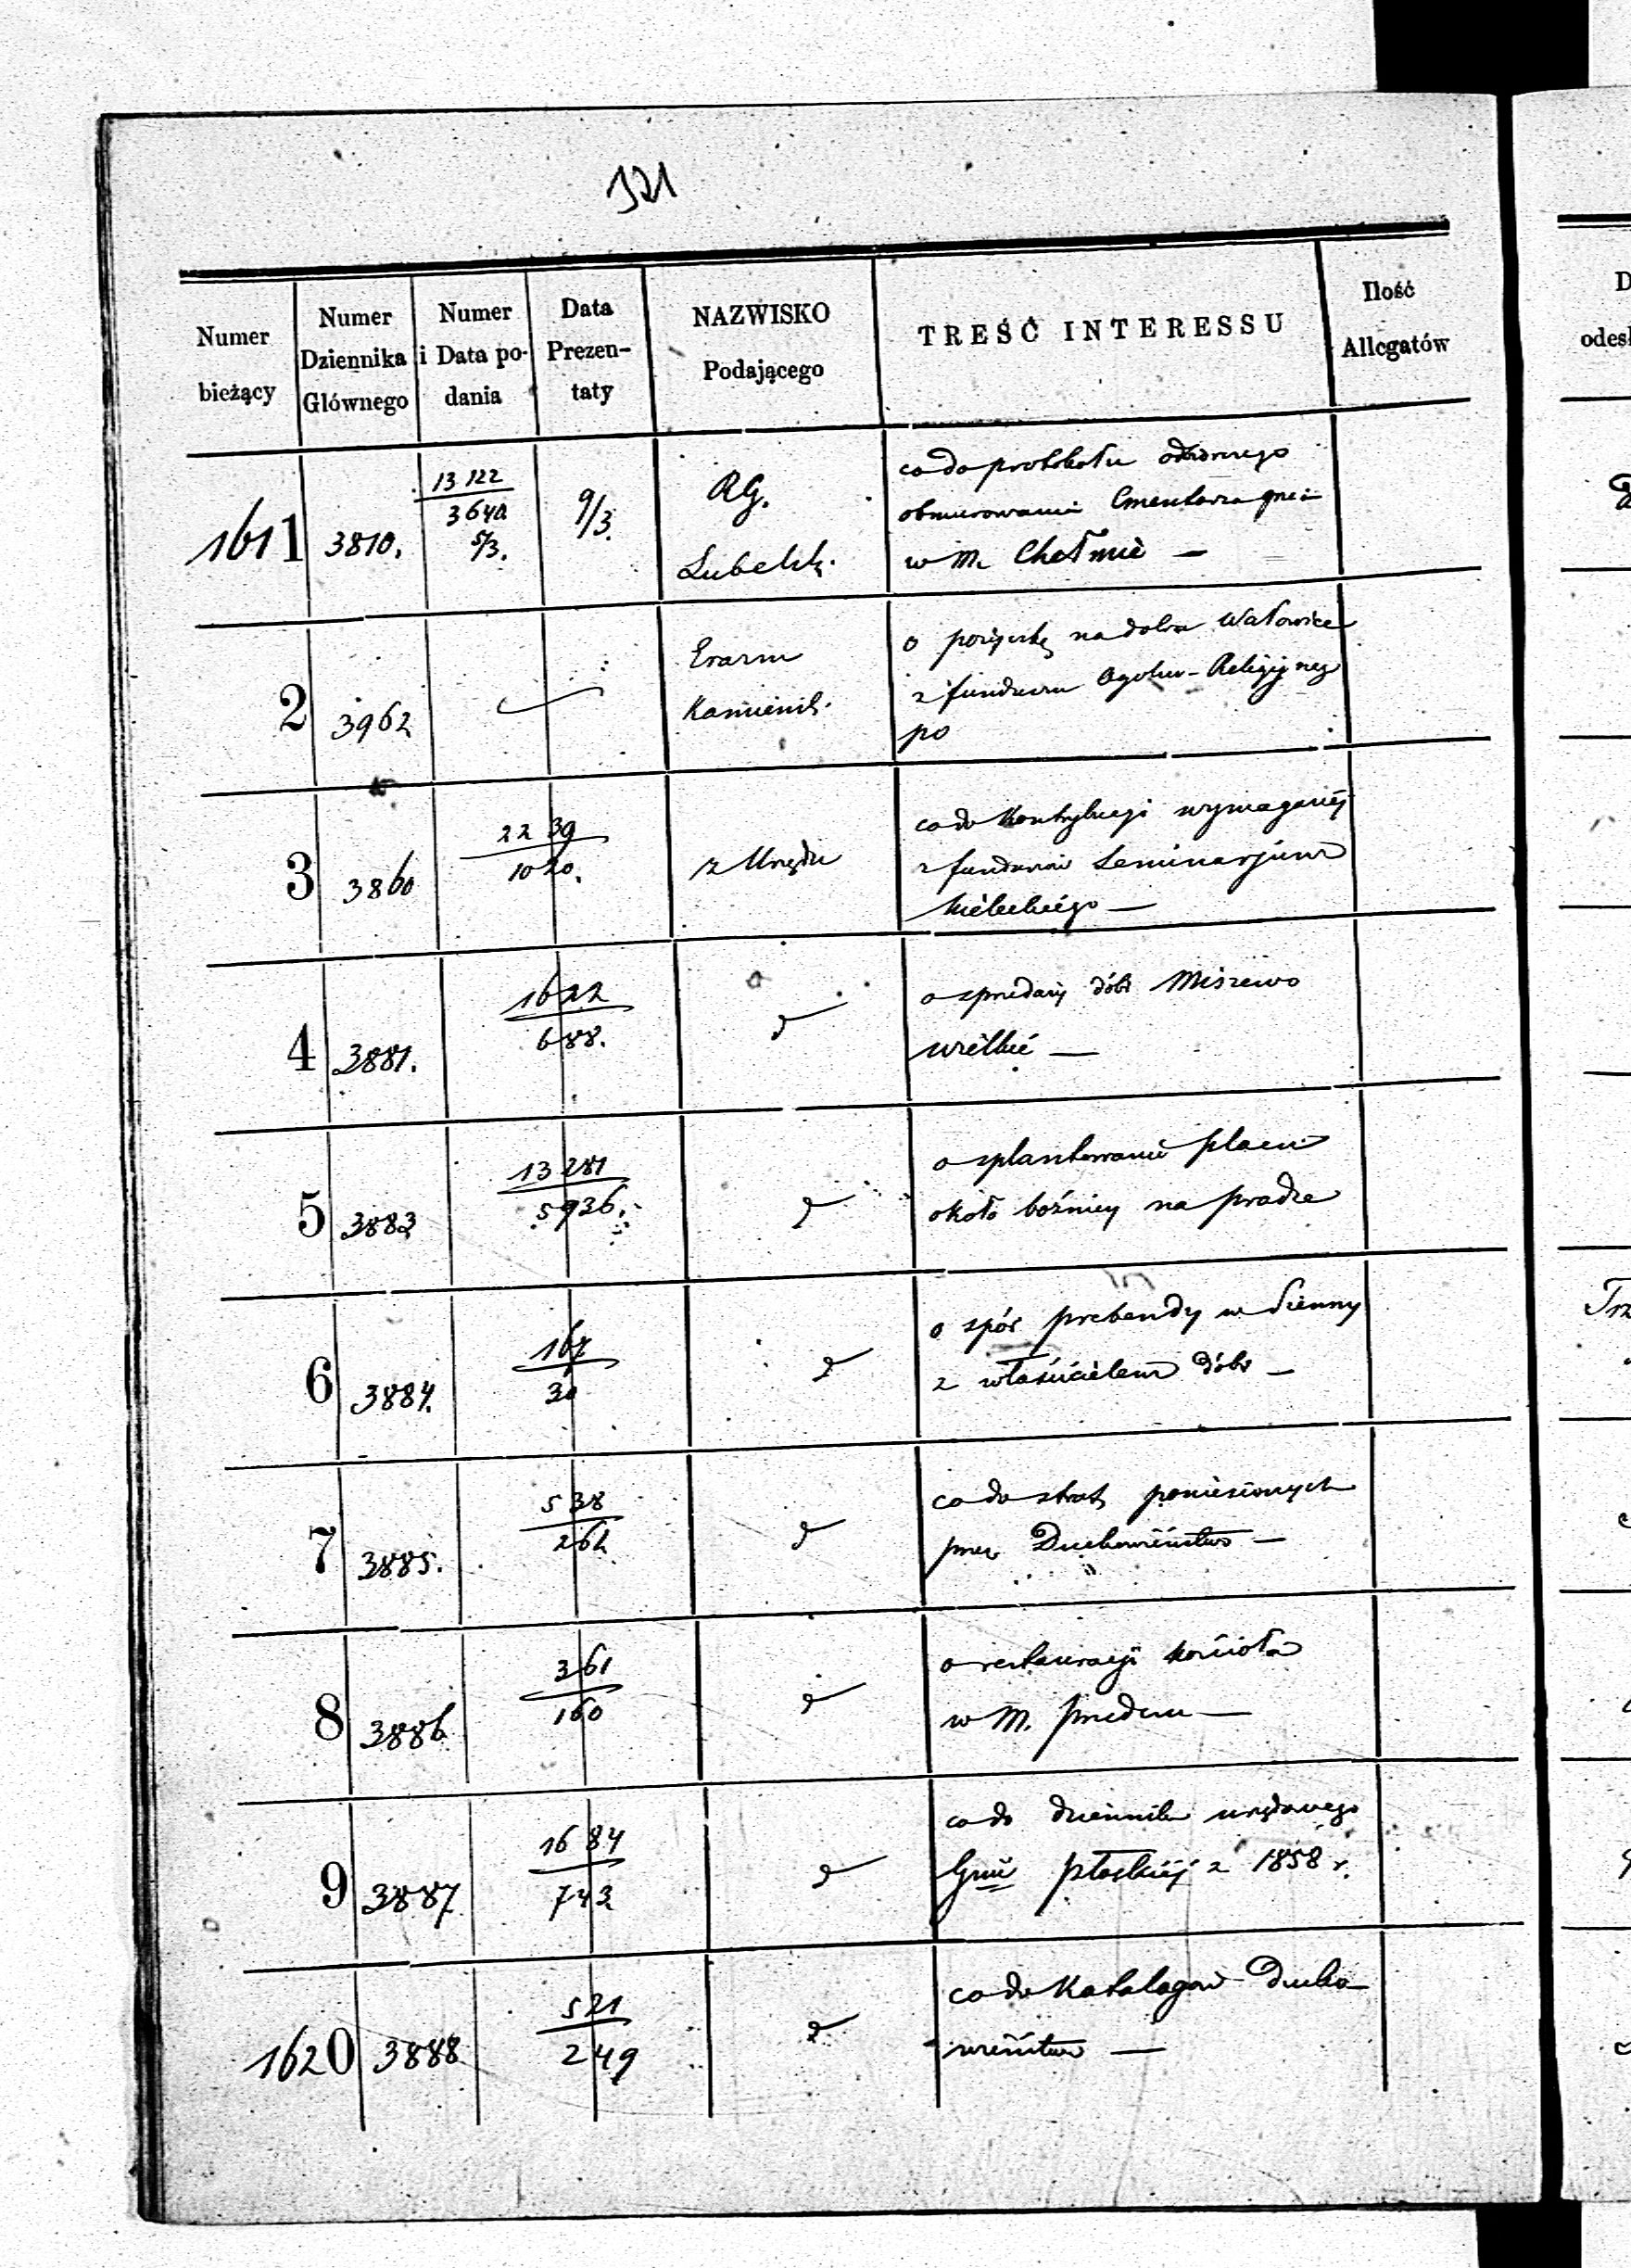 321
Numer bieżący
Numer Dziennika Głównego
Numer i Data podania
Data Prezentaty
NAZWISKO Podającego
TREŚĆ INTERESSU
Ilość Allegatów
1611 3810. 13122/3640 5/3. 9/3. RG. Lubelsk.
co do protokołu odbiorczego
obmurowania Cmentarza
w M. Chełmie —
2 3962 Erazm Kamieńsk.
o pożyczkę na dobra Wałowice
z funduszu Ogólno-Religijnego
po
3 3860 2239/1020. z Urzędu
co do Kontrybucyi wymaganéj
z funduszu Seminarjum
Kieleckiego —
4 3881. 1622/688. d
o sprzedaży dóbr Miszewo
wielkie —
5 3883 13281/5936. d
o splantowanie placu
około bóźnicy na pradze
6 3884. 167/30 d
o spór prebendy w Sienny
z właścicielem dóbr —
7 3885. 538/262 d
co do strat poniesionych
przez Duchowieństwo —
8 3886 361/160 d
o restauracyi kościoła
w M.
9 3887 1684/743 d
co do dziennika urzędowego
Gnii płockiéj z 1858 r.
1620 3888 521/249 d
co do Katalogów Ducho
wieństwa —
D
odes